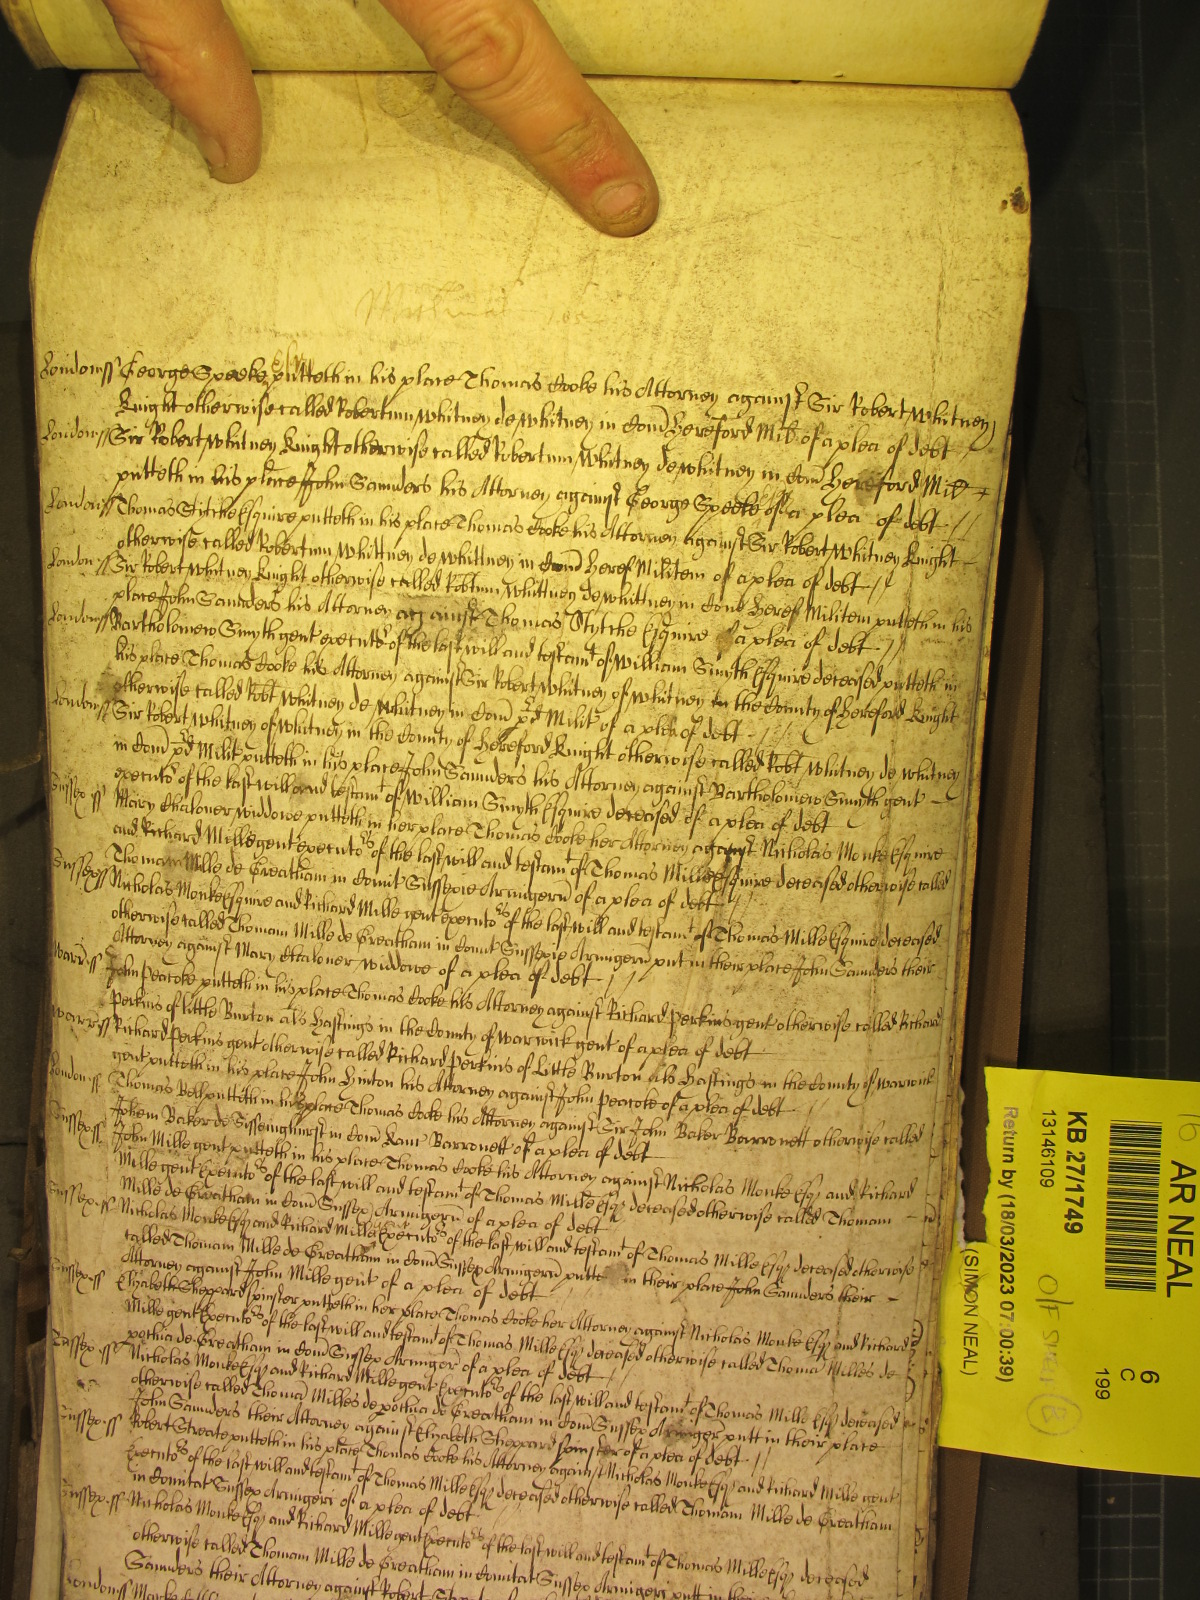 London ss George Speeke Esqr putteth in his place Thomas Cooke his Attorney against Sir Robert Whitney
Knight otherwise called Robertum Whitney de Whitney in Com Hereford Mil of a plea of debt
London ss Sir Robert Whitney Knight otherwise called Robertum Whitney de Whitney in Com Hereford Mil
putteth in his place John Saunders his Attorney against George Speeke Esqr of a plea of debt
London ss Thomas Stitche Esquire putteth in his place Thomas Cooke his Attorney against Sir Robert Whitney Knight
otherwise called Robertum Whittney de Whittney in Com Heref Militem of a plea of debt
London ss Sir Robert Whitney Knight otherwise called Robtum Whittney de Whittney in Com Heref Militem putteth in his
place John Saunders his Attorney against Thomas Stytche Esquire of a plea of debt
London ss Bartholomew Smyth gent executor of the last will and testamt of William Smyth Esquire deceased putteth in
his place Thomas Cooke his Attorney against Sir Robert Whitney of Whitney in the County of Hereford Knight
otherwise called Robt Whitney de Whitney in Com pd Milit of a plea of debt
London ss Sir Robert Whitney of Whitney in the County of Hereford Knight otherwise called Robt Whitney de Whitney
in Com pd Milit putteth in his place John Saunders his Attorney against Bartholomew Smyth gent
executor of the last will and testamt of William Smyth Esquire deceased of a plea of debt
Sussex ss Mary Chaloner widdowe putteth in her place Thomas Cooke her Attorney against Nicholas Monke Esquire
and Richard Mille gent executors of the last will and testamt of Thomas Mille Esquire deceased otherwise called
Thomam Mille de Greatham in Comit Sussexie Armigerum of a plea of debt
Sussex ss Nicholas Monke Esquire and Richard Mille gent executors of the last will and testamt of Thomas Mille Esquire deceased
otherwise called Thomam Mille de Greatham in Comit Sussexie Armigerum put in their place John Saunders their
Attorney against Mary Chaloner widdowe of a plea of debt
Warr ss John Peacoke putteth in his place Thomas Cooke his Attorney against Richard Perkins gent otherwise called Richard
Perkins of little Burton als Hastings in the County of Warwick gent of a plea of debt
Warr ss Richard Perkins gent otherwise called Richard Perkins of Little Burton als Hastings in the County of Warwick
gent putteth in his place John Hinton his Attorney against John Peacoke of a plea of debt
London ss Thomas putteth in his place Thomas Cooke his Attorney against Sir John Baker Barronett otherwise called
Johem Baker de Sissenghurst in Com Kanc Barronett of a plea of debt
Sussex ss John Mille gent putteth in his place Thomas Cooke his Attorney against Nicholas Monke Esqr and Richard
Mille gent Executors of the last will and testamt of Thomas Mille Esqr deceased otherwise called Thomam
Mille de Greatham in Com Sussex Armigerum of a plea of debt
Sussex ss Nicholas Monke Esqr and Richard Mille gent Executors of the last will and testamt of Thomas Mille Esqr deceased otherwise
called Thomam Mille de Greatham in Com Sussex Armigerum putt in their place John Saunders their
Attorney against John Mille gent of a plea of debt
Sussex ss Elizabeth Sheppard spinster putteth in her place Thomas Cooke her Attorney against Nicholas Monke Esqr and Richard
Mille gent Executors of the last will and testamt of Thomas Mille Esqr deceased otherwise called Thoma Milles de
pothia de Greatham in Com Sussex Armiger of a plea of debt
Sussex ss Nicholas Monke Esqr and Richard Mille gent Executors of the last will and testamt of Thomas Mille Esqr deceased
otherwise called Thomam Milles de pothia de Greatham in Com Sussex Armiger putt in their place
John Saunders their Attorney against Elizabeth Sheppard spinster of a plea of debt
Sussex ss Robert Streate putteth in his place Thomas Cooke his Attorney against Nicholas Monke Esqr and Richard Mille gent
Executors of the last will and testamt of Thomas Mille Esqr deceased otherwise called Thomam Mille de Greatham
in Comitat Sussex Armigeri of a plea of debt
Sussex ss Nicholas Monke Esqr and Richard Mille gent Executors of the last will and testamt of Thomas Mille Esqr deceased
otherwise called Thomam Mille de Greatham in Comitat Sussex Armigeri putt in their
Saunders their Attorney against Robert
London ss
AR NEAL
6
C
199
KB 27/1749
13146109
Return by (18/03/2023 07:00:39)
(SIMON NEAL)
16